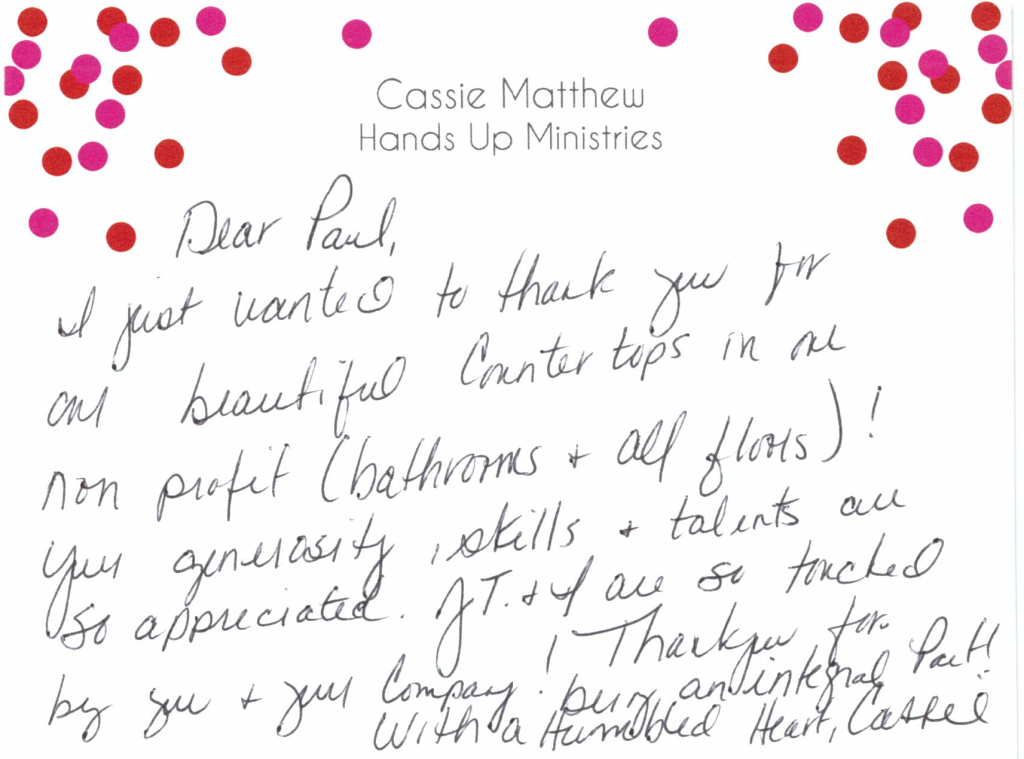 Cassie Matthew
Hands Up Ministries
Dear Paul,
I just wanted to thank you for
our beautiful Countertops in our
non profit (bathrooms + all floors)!
Your generosity, skills + talents are
so appreciated. JT. + I are so touched
by you + your Company! Thank you for
being an integral Part!
With a Humbled Heart, Cassie